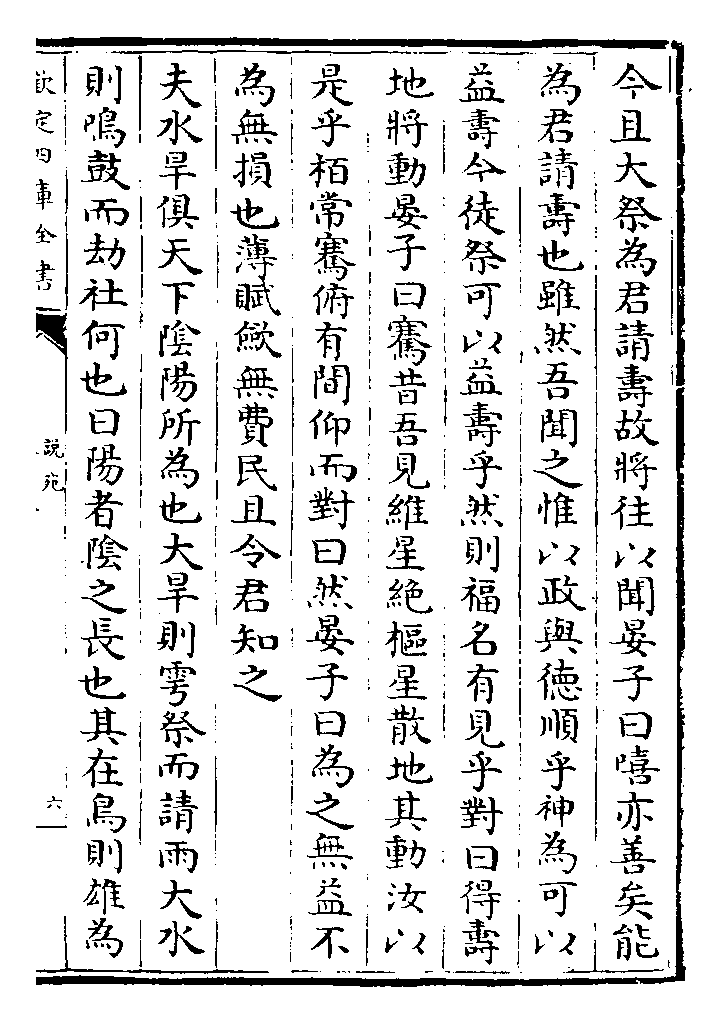 今且大祭為君請壽故將往以聞晏子曰嘻亦善矣能
為君請壽也雖然吾聞之惟以政與徳順乎神為可以
益壽今徒祭可以益壽乎然則福名有見乎對曰得壽
地將動晏子曰騫昔吾見維星絶樞星散地其動汝以
是乎栢常騫俯有間仰而對曰然晏子曰為之無益不
為無損也薄賦斂無費民且令君知之
夫水旱俱天下隂陽所為也大旱則雩祭而請雨大水
則鳴鼓而劫社何也曰陽者隂之長也其在鳥則雄為
欽定四庫全書
說苑
六